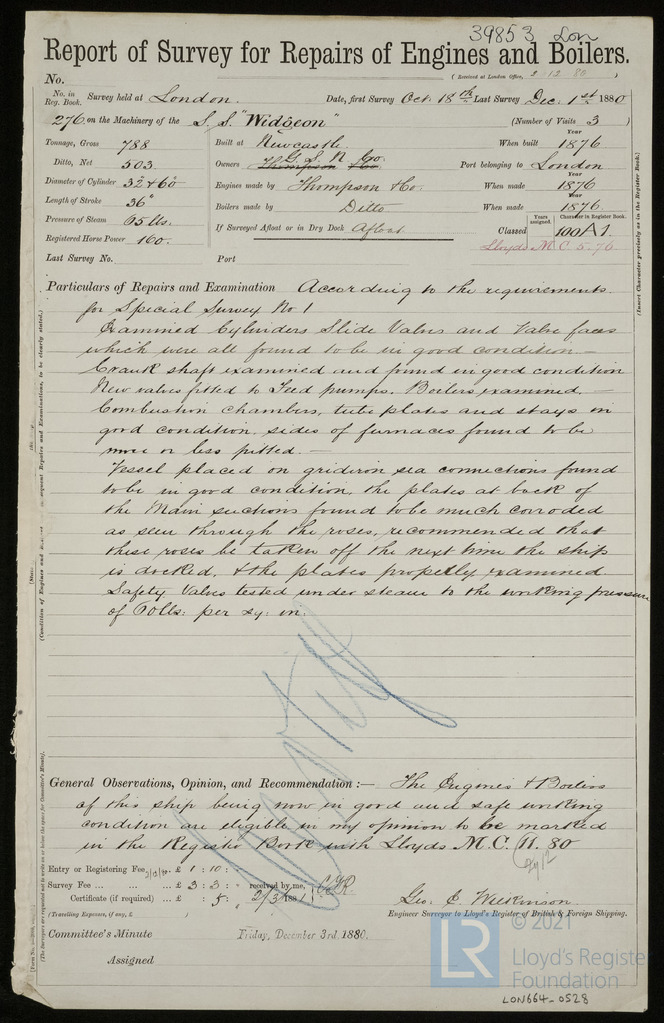 39853 Lon
Report of Survey for Repairs of Engines and Boilers.
No. (Received at London Office, 2.12.80)
No. in Reg. Book. Survey held at London. Date, first Survey Oct. 18th Last Survey Dec. 1st 1880
276 on the Machinery of the S.S. "Widgeon" (Number of Visits 3)
Tonnage, Gross 788 Built at Newcastle. When built Year 1876
Ditto, Net 503 Owners Thompson & Co. G. S. N. Co. Port belonging to London
Diameter of Cylinder 32 & 60" Engines made by Thompson & Co. When made Year 1876
Length of Stroke 36" Boilers made by Ditto When made Year 1876.
Pressure of Steam 65 lbs. If Surveyed Afloat or in Dry Dock Afloat Classed Years assigned. Character in Register Book. 100A1
Registered Horse Power 160. Lloyds M.C. 5.76
Last Survey No. Port
Particulars of Repairs and Examination According to the requirements
for Special Survey No 1
Examined Cylinders Slide Valves and Valve faces
which were all found to be in good condition.—
Crank shaft examined and found in good condition
New valves fitted to Feed pumps. Boilers examined.—
Combustion chambers, tube plates and stays in
good condition. sides of furnaces found to be
more or less pitted.—
Vessel placed on gridiron sea connections found
to be in good condition, the plates at back of
the Main suctions found to be much corroded
as seen through the roses, recommended that
these roses be taken off the next time the ship
is docked, & the plates properly examined
Safety Valves tested under steam to the working pressure
of 60lbs: per sq: in.
General Observations, Opinion, and Recommendation:— The Engines & Boilers
of this ship being now in good and safe working
condition are eligible in my opinion to be marked
in the Register Book with Lloyds M.C. 11.80
Entry or Registering Fee £ 1 : 10 :
Survey Fee ... ... £ 3 : 3 : received by me,
Certificate (if required) ... £ : 5 : 2/3/1881
(Travelling Expenses, if any, £ )
Geo. C. Wilkinson
Engineer Surveyor to Lloyd's Register of British & Foreign Shipping.
Committee's Minute Friday, December 3rd, 1880.
Assigned
(Insert Character precisely as in the Register Book.)
© 2021
LR
Lloyd's Register
Foundation
LON664-0528